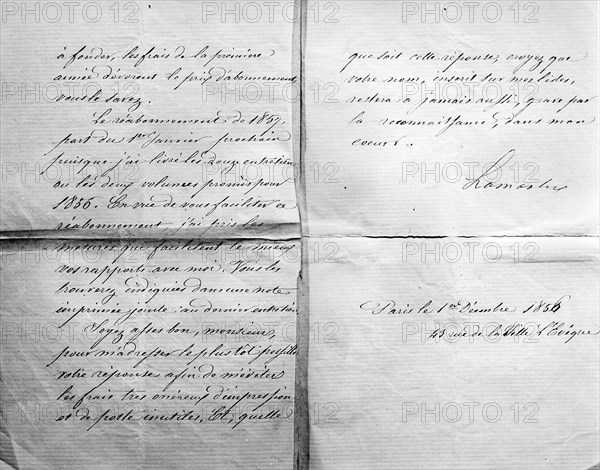 à fonder, les frais de la première
année dévorent le prix d'abonnement,
vous le savez.
Le réabonnement de 1857,
part du 1er Janvier prochain
puisque j'ai livré les douze entretiens
ou les deux volumes promis pour
1856. En vue de vous faciliter ce
réabonnement, j'ai pris les
mesures qui facilitent le mieux
vos rapports avec moi. Vous les
trouverez indiquées dans une note
imprimée jointe au dernier entretien
Soyez assez bon, monsieur,
pour m'adresser le plus tôt possible
votre réponse afin de m'éviter
les frais très onéreux d'impression
et de poste inutiles. Et, quelle
que soit cette réponse, croyez que
votre nom, inscrit sur mes listes,
restera à jamais aussi, gravé par
la reconnaissance, dans mon
coeur.
Lamartine
Paris le 1er Décembre 1856
43 rue de la Ville l'Evêque
PHOTO 12